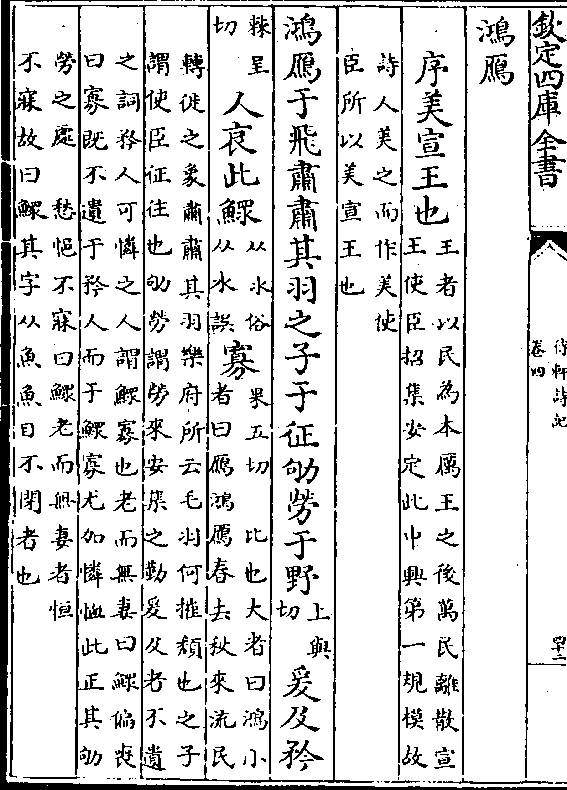 欽定四庫全書
待軒詩記
卷四
四十二
鴻鴈
序美宣王也
王者以民為本厲王之後萬民離散宣
王使臣招集安定此中興第一規模故
詩人美之而作美使
臣所以美宣王也
鴻鴈于飛肅肅其羽之子于征劬勞于野
上與
切
爰及矜
棘呈
切
人哀此鰥
从氷俗
从水誤
寡
果五切
比也大者曰鴻小
者曰鴈鴻鴈春去秋來流民
轉徙之象肅肅其羽樂府所云毛羽何摧頽也之子
謂使臣征往也劬勞謂勞來安集之勤爰及者不遺
之詞矜人可憐之人謂鰥寡也老而無妻曰鰥偏喪
曰寡既不遺于矜人而于鰥寡尤加憐恤此正其劬
勞之處
愁悒不寐曰鰥老而無妻者恒
不寐故曰鰥其字从魚魚目不閉者也